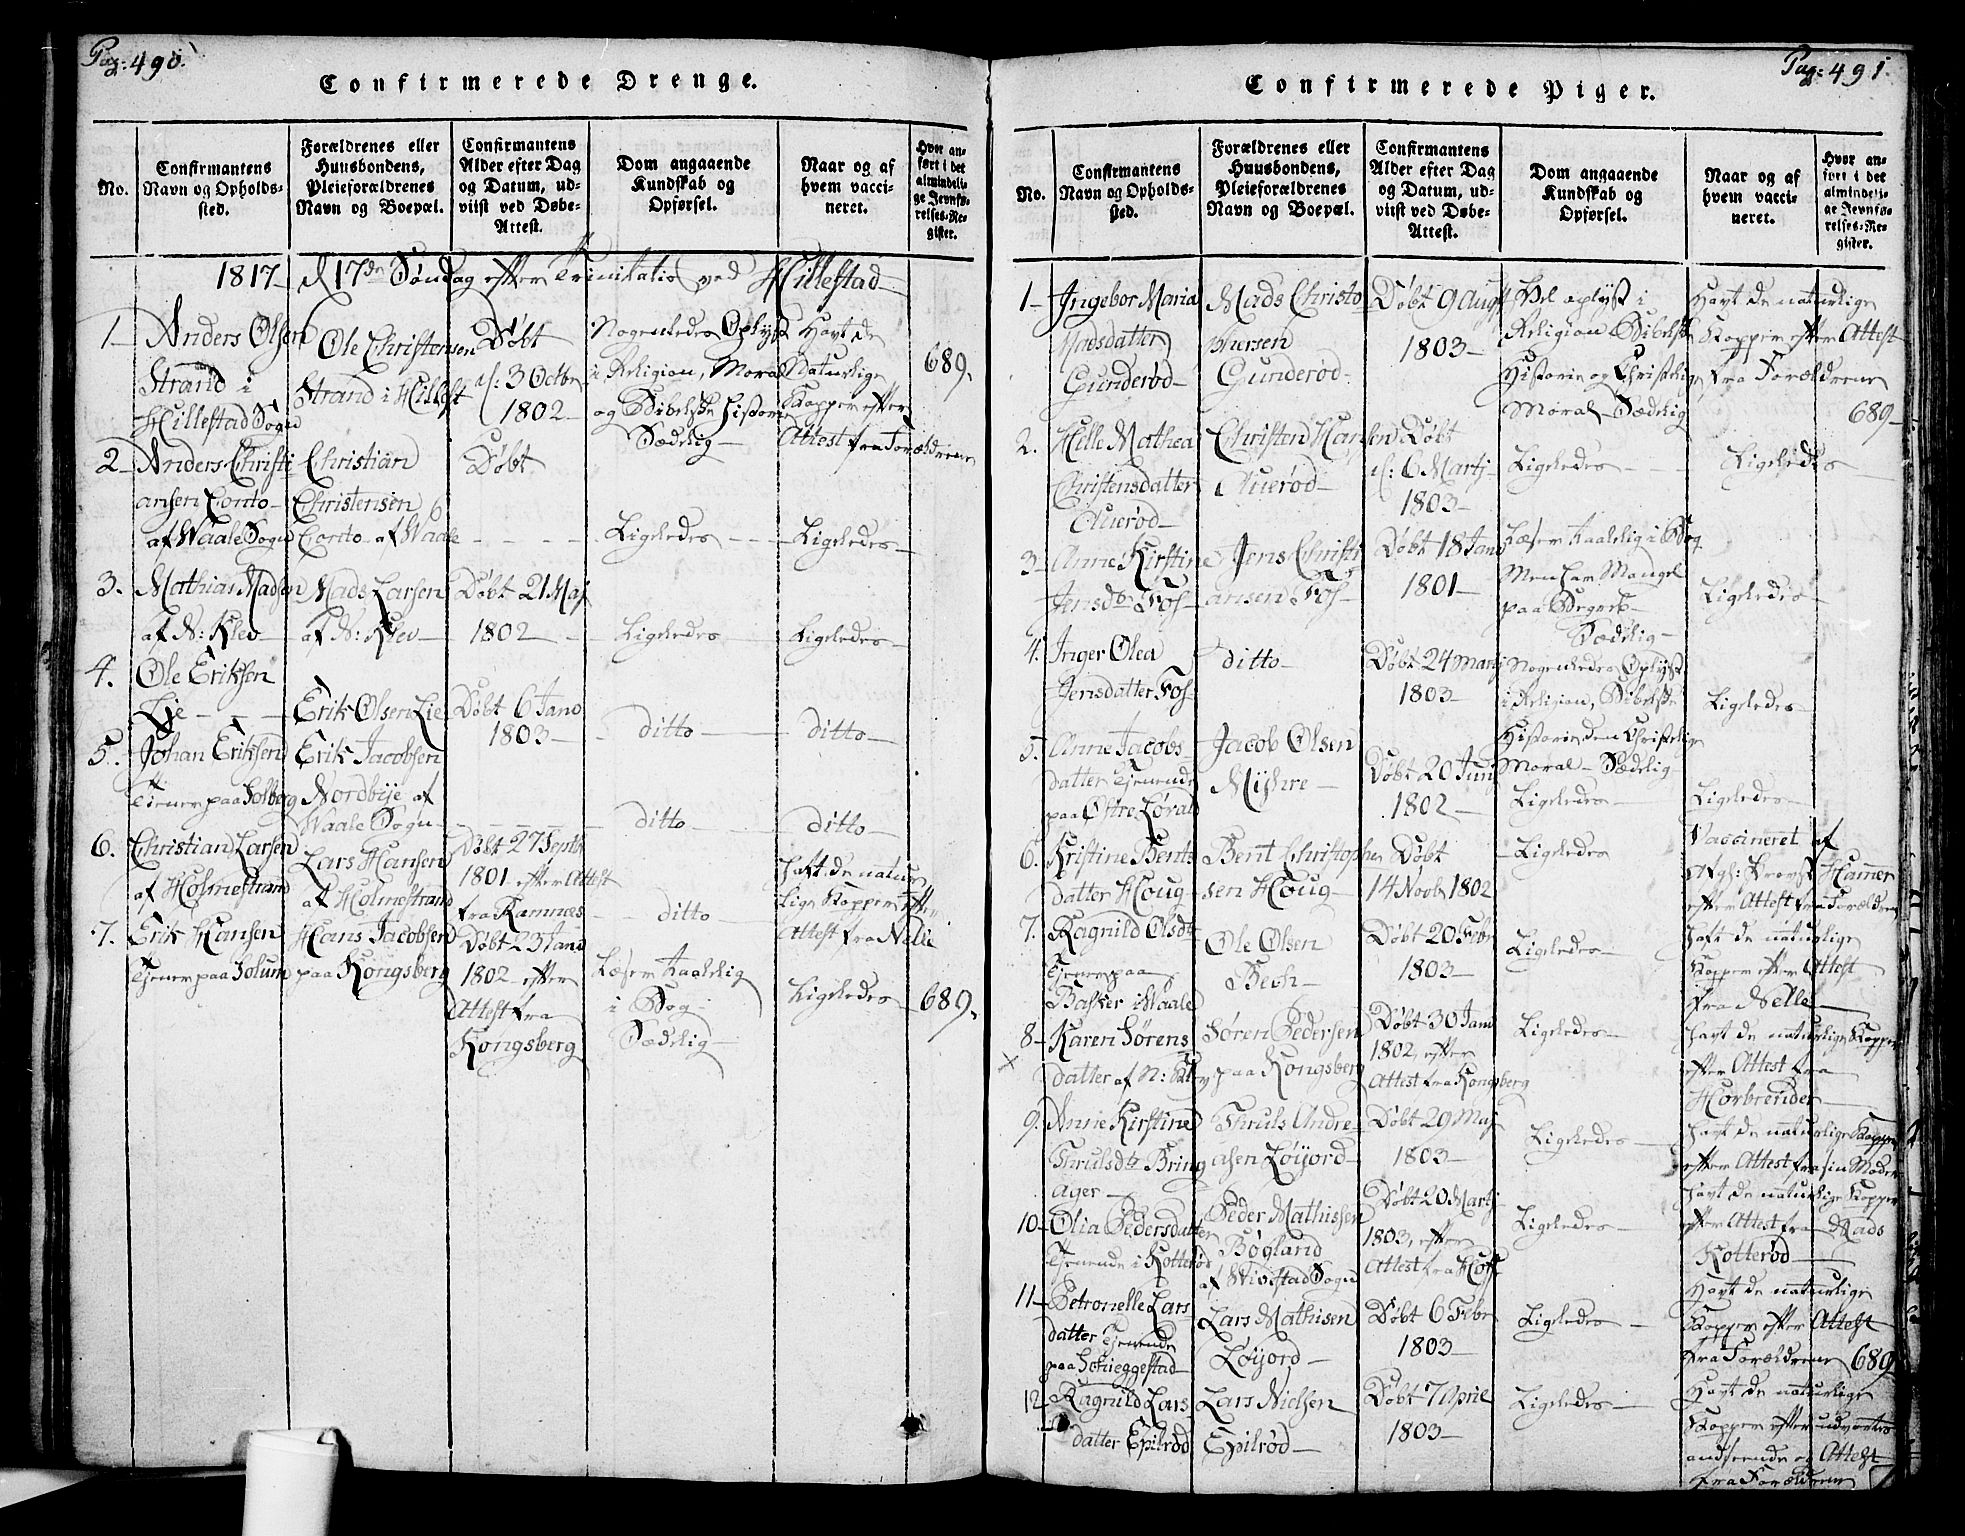 Pag: 490.
Confirmerede Drenge.
No.
Confirmantens
Navn og Opholds-
sted.
Forældrenes eller
Huusbondens,
Pleieforældrenes
Navn og Boepæl.
Confirmantens
Alder efter Dag
og Datum, ud-
viist ved Døbe-
Attest.
Dom angaaende
Kundskab og
Opførsel.
Naar og af
hvem vacci-
neret.
Hvor an-
ført i det
almindeli-
ge Jevnfø-
relses-Re-
gister.
1817 d 17de Søndag efter Trinitatis ved Hillestad
1 Anders Olsen
Strand i
Hillestad Sogn
Ole Christensen
Strand i Hillest
Døbt
d: 3 Octbr
1802
Nogenledes Oplyst
i Religion, Moral
og Bibelske Historie
Sædelig
Havt de
Naturlige
Kopper efter
Attest fra Forældrene
689.
2 Anders Christi
ansen Conto
af Waale Sogn
Christian
Christensen
Conto af Waale
Døbt
Ligeledes
Ligeledes
3. Mathias Madsen
af N: Klev
Mads Larsen
af N: Klev
Døbt 21 Maj
1802
Ligeledes
Ligeledes
4. Ole Eriksen
Lie
Erik Olsen Lie
Døbt 6 Jano
1803
ditto
ditto
5. Johan Eriksen
Tiener paa Solberg
Erik Jacobsen
Nordbye af
Waale Sogn
ditto
ditto
6. Christian Larsen
af Holmestrand
Lars Hansen
af Holmestrand
Døbt 27 Septb
1801 efter Attest
fra Ramnes
ditto
haft de natur
lige Kopper efter
Attest fra Nelle
7. Erik Hansen
Tjener paa Solum
Hans Jacobsen
paa Kongsberg
Døbt 23 Jano
1802 efter
Attest fra
Kongsberg
Læser taalelig
i Bog
Sædelig
Ligeledes
689.
Pag: 491.
Confirmerede Piger.
No.
Confirmantens
Navn og Opholds-
sted.
Forældrenes eller
Huusbondens,
Pleieforældrenes
Navn og Boepæl.
Confirmantens
Alder efter Dag
og Datum, ud-
viist ved Døbe-
Attest.
Dom angaaende
Kundskab og
Opførsel.
Naar og af
hvem vacci-
neret.
Hvor an-
ført i det
almindelig-
ge Jevnfø-
relses-Re-
gister.
1 Ingebor Maria
Madsdatter
Gunderød
Mads Christo
phersen
Gunderød
Døbt 9 Aug
1803
Vel oplyst i
Religion Bibelske
Historie og Christelig
Moral Sædelig
Havt de naturlige
Kopper efter Attest
fra Forældrene
689
2. Helle Mathea
Christensdatter
Auerød
Christen Hansen
Auerød
Døbt
d: 6 Martj
1803
Ligeledes
Ligeledes
3 Anne Kirstine
Jensdtr Fos
Jens Christi
ansen Fos
Døbt 18 Jano
1801
Læser taalelig i Bog
Men har Mangel
paa Begreb
Sædelig
Ligeledes
4. Inger Olea
Jensdatter Fos
ditto
Døbt 24 Martj
1803
Nogenledes Oplyst
i Religion, Bibelske
Historie den Christelige
Moral Sædelig
Ligeledes
5. Anne Jacobs
datter Tjenende
paa Østre Løvald
Jacob Olsen
Myhre
Døbt 20 Junj
1802
Ligeledes
Ligeledes
6. Kristine Bents
datter Houg
Bent Christophe
sen Houg
Døbt
14 Novbr 1802
Ligeledes
Vaccineret af
Provst Hamer
efter Attest fra Forældrene
7. Ragnild Olsdtr
Tjener paa
Basker i Waale
Ole Olsen
Bech
Døbt 20 Febr
1803
Ligeledes
haft de naturlige
Kopper efter Attest
fra Nelle
8 Karen Sørens
datter af N: Klev
Søren Pedersen
paa Kongsberg
Døbt 30 Jano
1802, efter
Attest fra Kongsberg
Ligeledes
havt de naturlige Kopper
efter Attest fra
9. Anne Kirstine
Thrulsdtr Bring
ager
Thruls Andre
asen Løijord
Døbt 29 Maj
1803
Ligeledes
havt de naturlige Kopper
efter Attest fra sin Moder
10 Olia Pedersdatter
Tjenende i Kotterød
Peder Mathissen
Bøgland
af Wivestad Sogn
Døbt 20 Martj
1803, efter
Attest fra Hoff
Ligeledes
havt de naturlige Kopper
efter Attest fra Mads
Kotterød
11 Petronelle Lars
datter Tjenende
paa Schieggestad
Lars Mathisen
Løijord
Døbt 6 Febr
1803
Ligeledes
Havt de naturlige
Kopper efter Attest
fra Forældrene
689
12 Ragnild Lars
datter Epilrød
Lars Nielsen
Epilrød
Døbt 7 Aprile
1803
Ligeledes
Havt de naturlige
Kopper efter udvortes
andseende og Attest
fra Forældrene